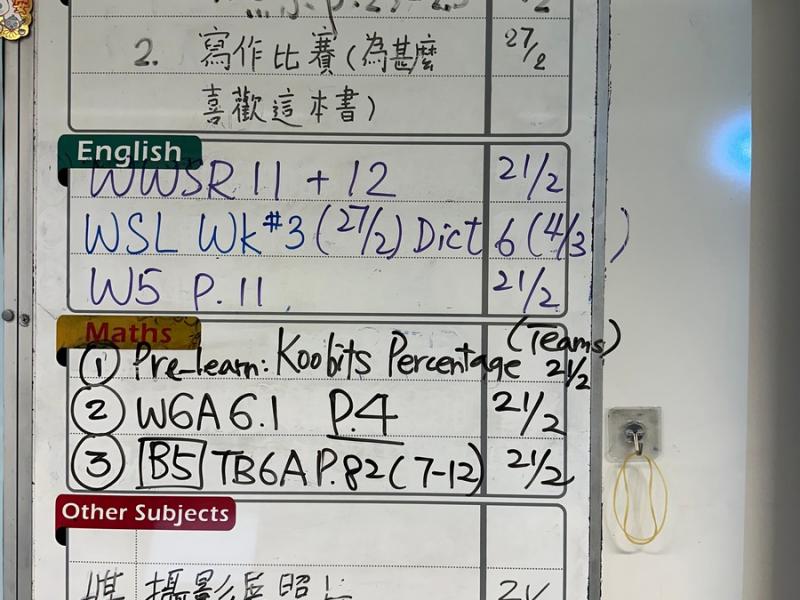 2. 寫作比賽(為甚麼 27/2
喜歡這本書)
English
WWSR 11 + 12 21/2
WSL Wk#3 (27/2) Dict 6 (4/3)
W5 P.11 21/2
Maths
① Pre-learn: Koobits Percentage (Teams) 21/2
② W6A 6.1 P.4 21/2
③ B5 TB6A P.82 (7-12) 21/2
Other Subjects
攝影